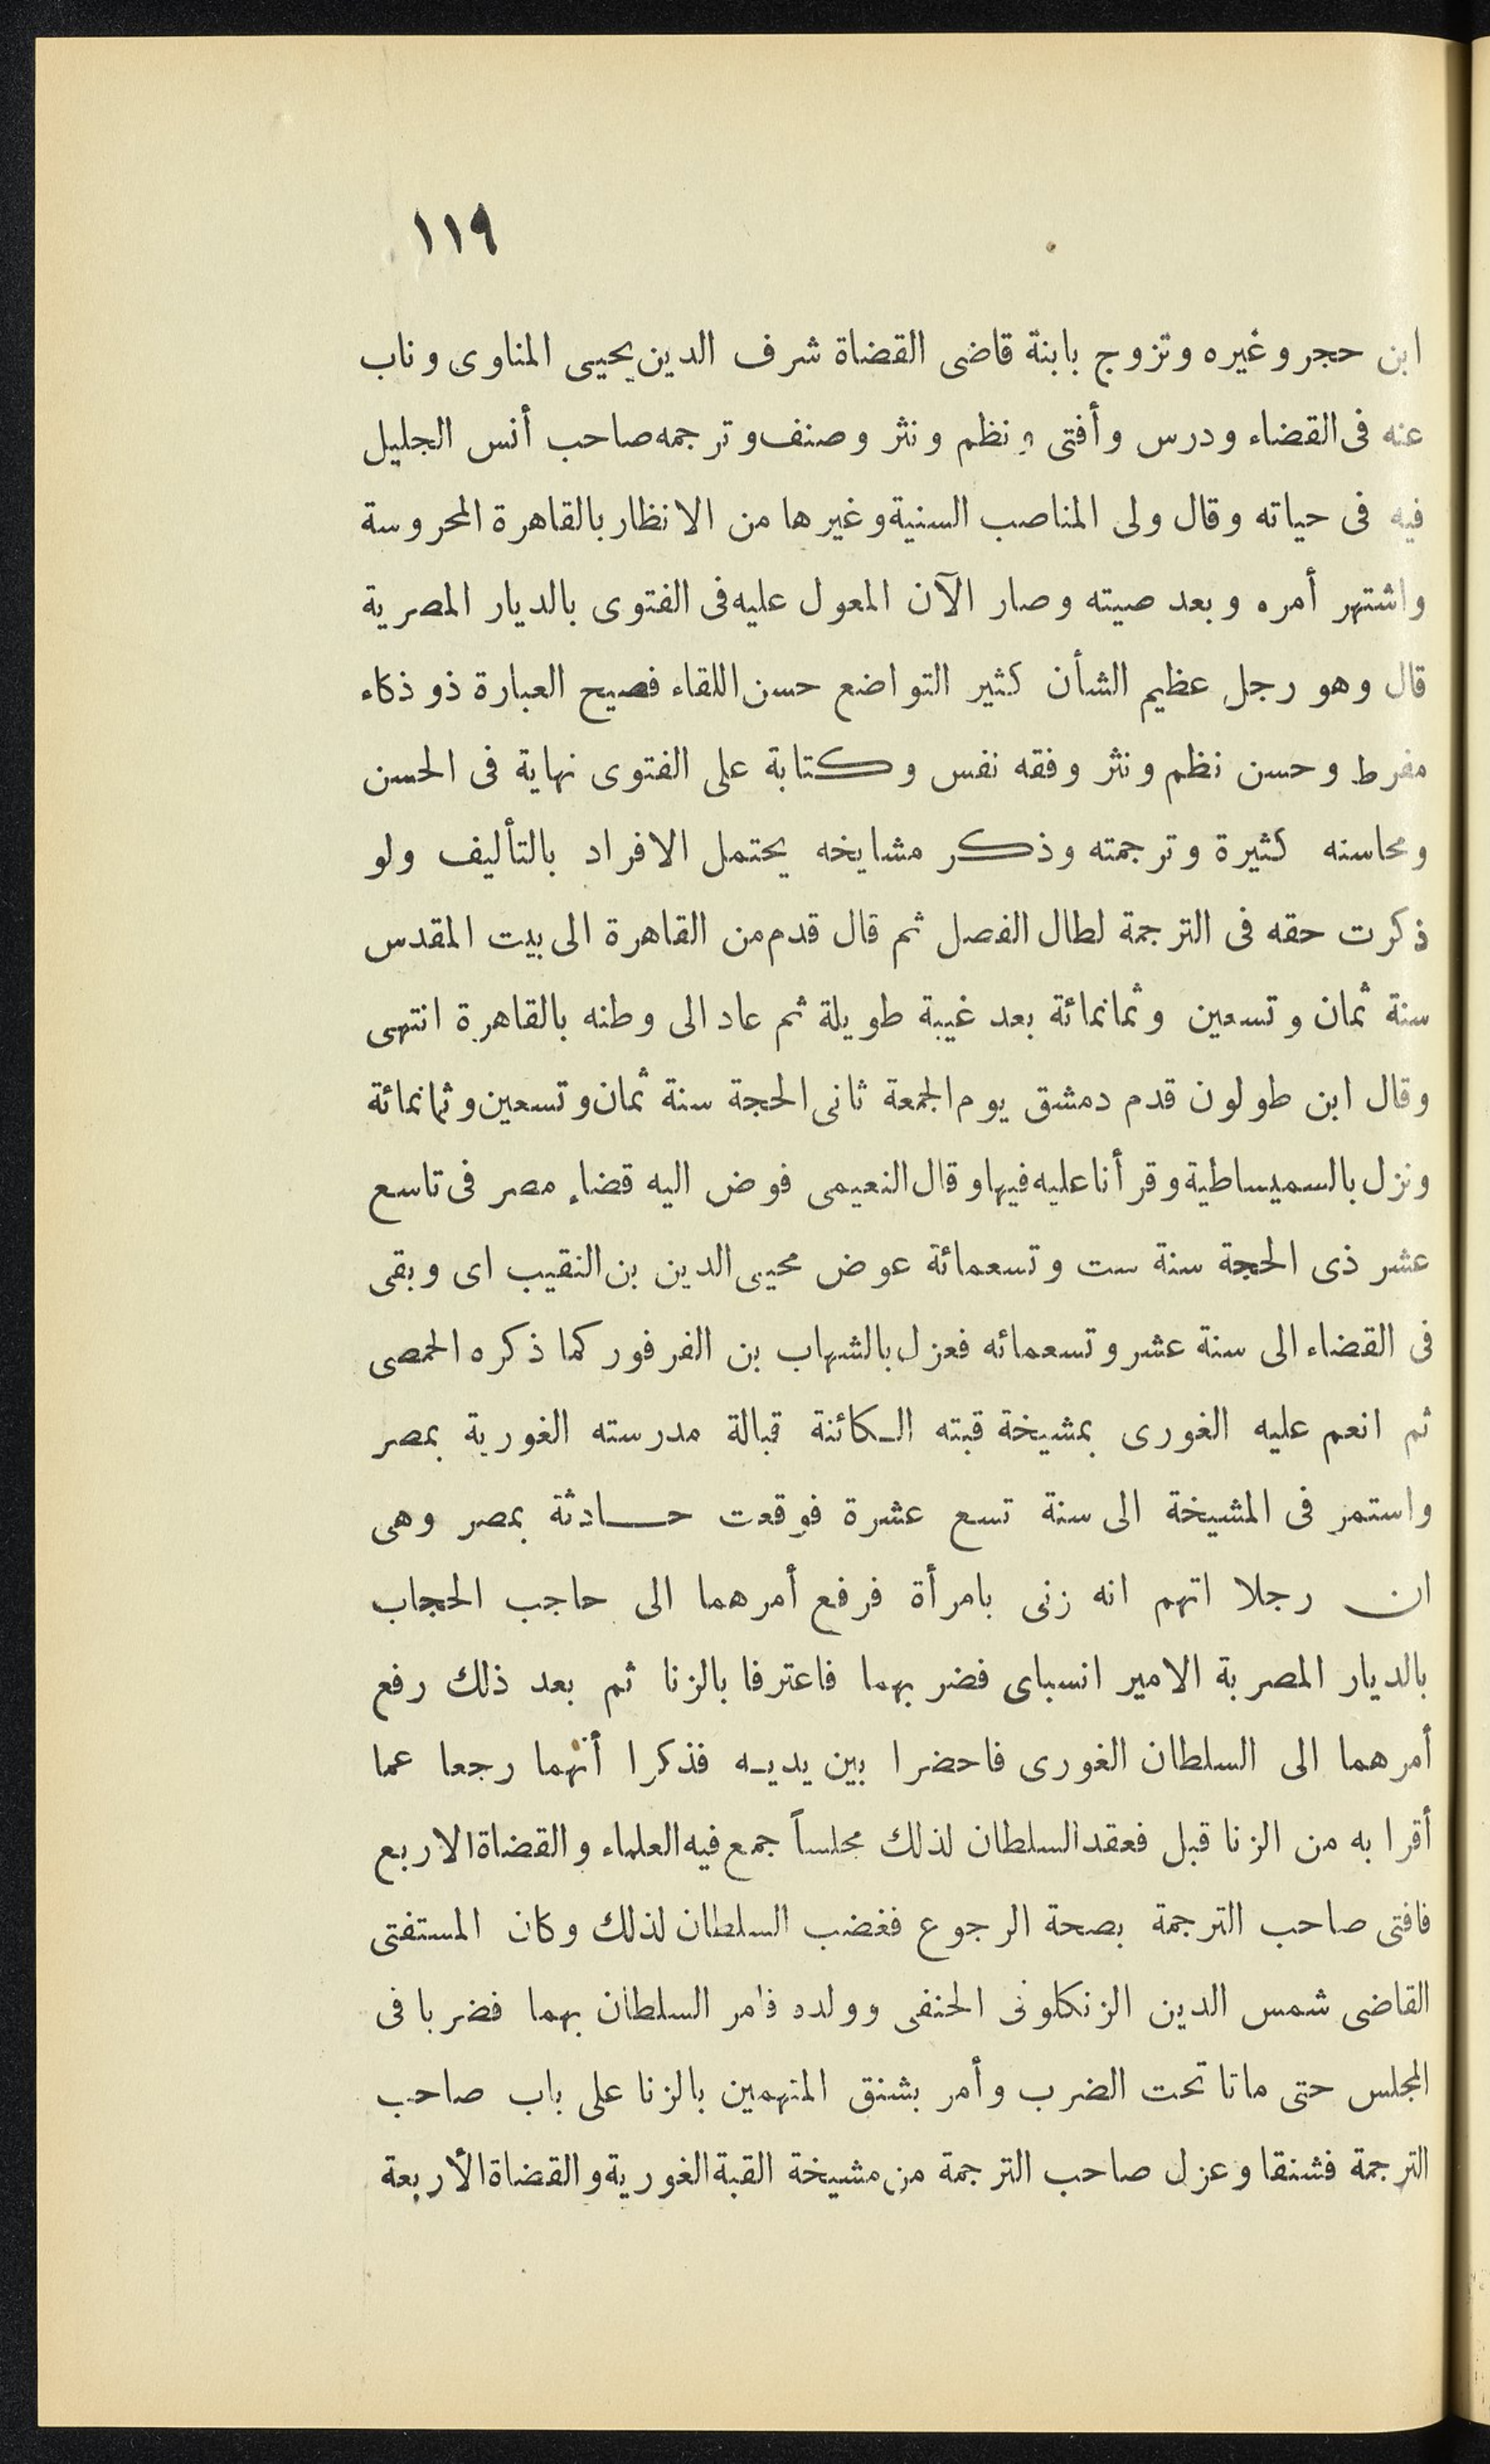 ١١٩
ابن حجر وغيره وتزوج بابنة قاضى القضاة شرف الدين يحيى المناوى وناب
عنه فى القضاء ودرس وأفتى ونظم ونثر وصنف وترجمه صاحب أنس الجليل
فيه فى حياته وقال ولى المناصب السنية وغيرها من الانظار بالقاهرة المحروسة
واشتهر أمره وبعد صيته وصار الآن المعول عليه فى الفتوى بالديار المصرية
قال وهو رجل عظيم الشأن كثير التواضع حسن اللقاء فصيح العبارة ذو ذكاء
مفرط وحسن نظم ونثر وفقه نفس وكتابة على الفتوى نهاية فى الحسن
ومحاسنه كثيرة وترجمته وذكر مشايخه يحتمل الافراد بالتأليف ولو
ذكرت حقه فى الترجمة لطال الفصل ثم قال قدم من القاهرة الى بيت المقدس
سنة ثمان وتسعين وثمانمائة بعد غيبة طويلة ثم عاد الى وطنه بالقاهرة انتهى
وقال ابن طولون قدم دمشق يوم الجمعة ثانى الحجة سنة ثمان وتسعين وثمانمائة
ونزل بالسميساطية وقرأنا عليه فيها وقال النعيمى فوض اليه قضاء مصر فى تاسع
عشر ذى الحجة سنة ست وتسعمائة عوض محيى الدين بن النقيب اى وبقى
فى القضاء الى سنة عشر وتسعمائه فعزل بالشهاب بن الفرفور كما ذكره الحمصى
ثم انعم عليه الغورى بمشيخة قبته الكائنة قبالة مدرسته الغورية بمصر
واستمر فى المشيخة الى سنة تسع عشرة فوقعت حادثة بمصر وهى
ان رجلا اتهم انه زنى بامرأة فرفع أمرهما الى حاجب الحجاب
بالديار المصرية الامير انسباى فضربهما فاعترفا بالزنا ثم بعد ذلك رفع
أمرهما الى السلطان الغورى فاحضرا بين يديه فذكرا أنهما رجعا عما
أقرا به من الزنا قبل فعقد السلطان لذلك مجلساً جمع فيه العلماء والقضاة الاربع
فافتى صاحب الترجمة بصحة الرجوع فغضب السلطان لذلك وكان المستفتى
القاضى شمس الدين الزنكلونى الحنفى وولده فامر السلطان بهما فضربا فى
المجلس حتى ماتا تحت الضرب وأمر بشنق المتهمين بالزنا على باب صاحب
الترجمة فشنقا وعزل صاحب الترجمة من مشيخة القبة الغورية والقضاة الأربعة